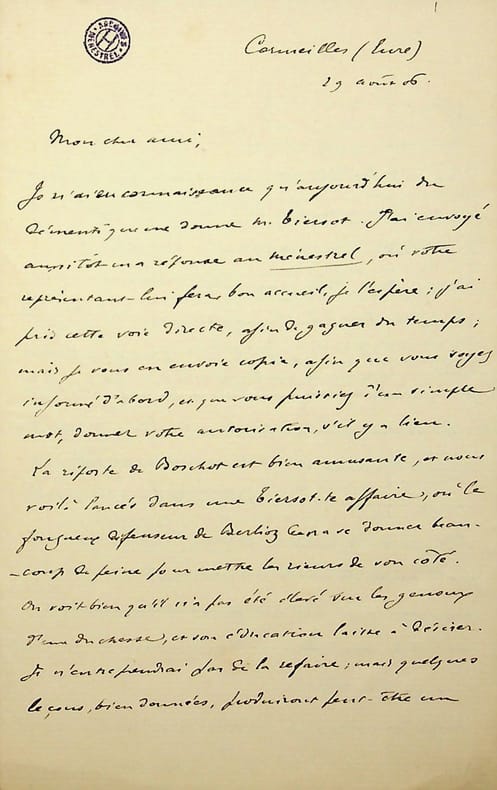 1
ARCHIVES
H
MÉNESTREL
Cormeilles (Eure)
29 août 06.
Mon cher ami,
Je n'ai eu connaissance qu'aujourd'hui du
démenti que me donne M. Tiersot. J'ai envoyé
aussitôt ma réponse au Ménestrel, où votre
représentant lui fera bon accueil, je l'espère ; j'ai
pris cette voie directe, afin de gagner du temps ;
mais je vous en envoie copie, afin que vous soyez
informé d'abord, et que vous puissiez d'un simple
mot, donner votre autorisation, s'il y a lieu.
La riposte de Boschot est bien amusante, et nous
voilà lancés dans une Tiersot-te affaire, où le
fougueux défenseur de Berlioz aura se donner beau-
-coup de peine pour mettre les rieurs de son côté.
On voit bien qu'il n'a pas été élevé sur les genoux
d'une duchesse, et son éducation laisse à désirer.
Je n'entreprendrai pas de la refaire ; mais quelques
leçons, bien données, produiront peut-être un